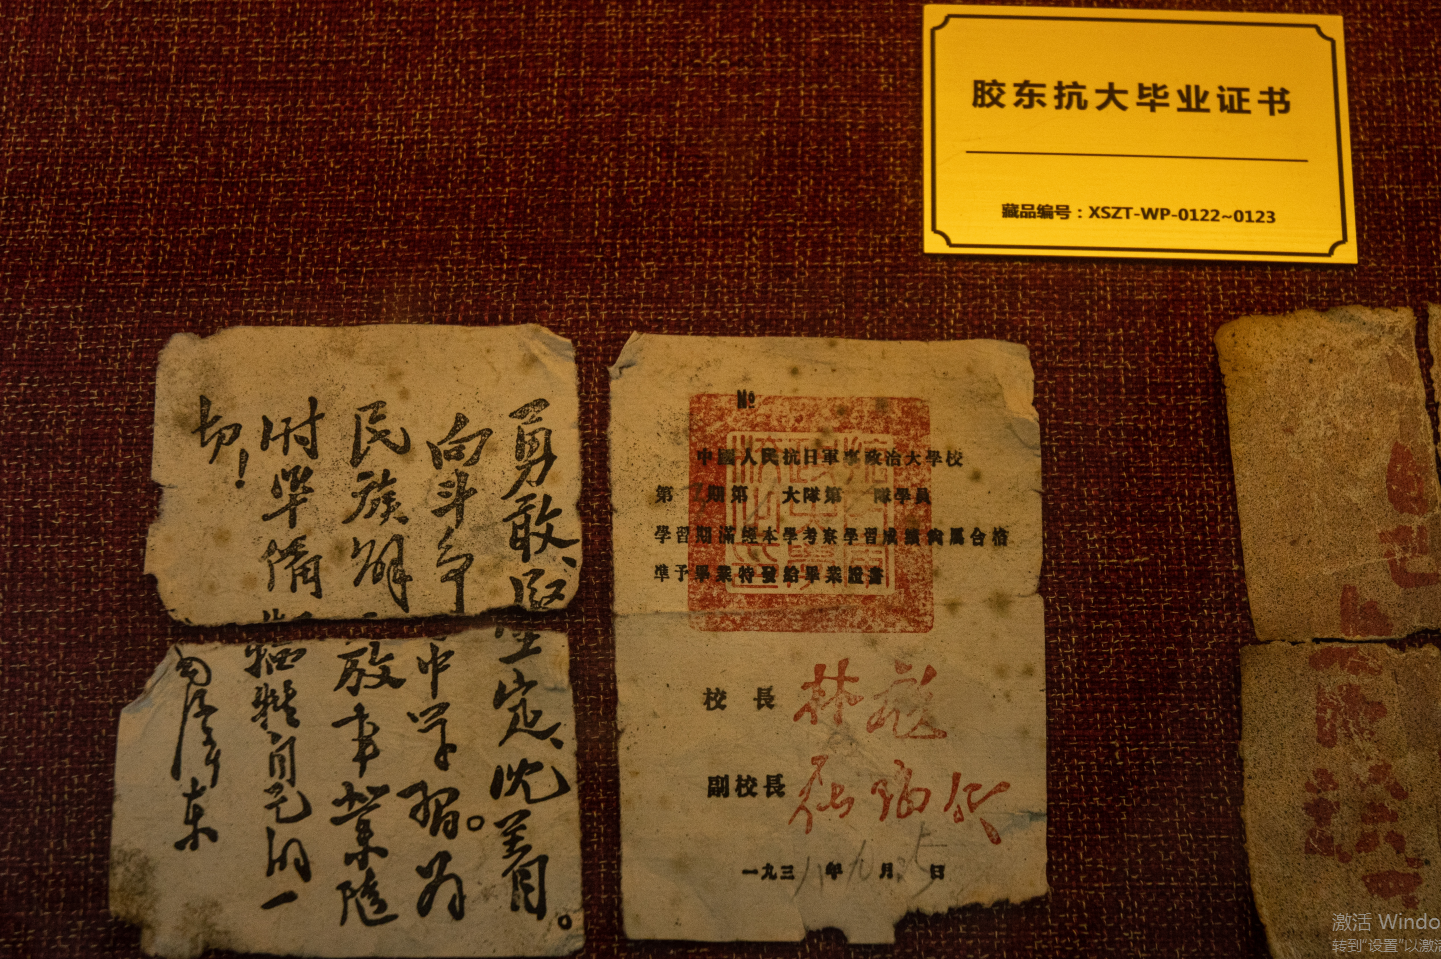 胶东抗大毕业证书
藏品编号：XSZT-WP-0122~0123
勇敢、坚定、沉着。
向斗争中学习。为
民族解放事业随
时准备牺牲自己的一
切！
毛泽东
№
中國人民抗日軍事政治大學校
第 期第 大隊第 隊學員
學習期滿經本學考察學習成績尚屬合格
準予畢業特發給畢業證書
校長 林彪
副校長
一九三八年九月 日
激活 Windo
转到"设置"以激活